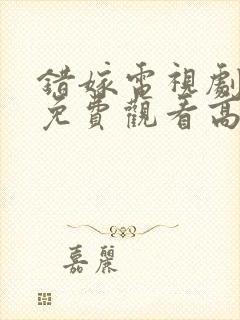 錯嫁電視劇
免費觀看高
嘉麗